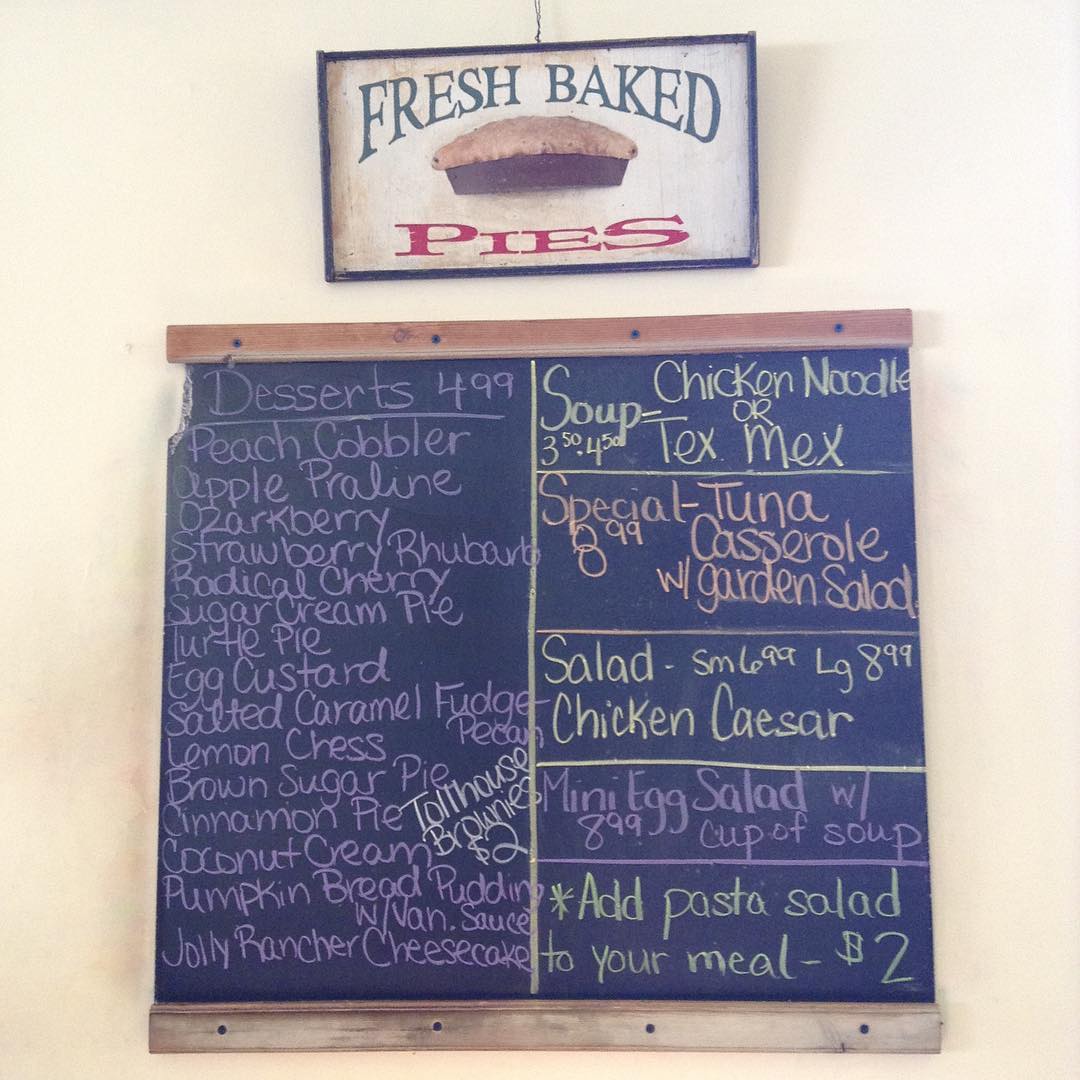 FRESH BAKED
PIES
Desserts 4 99
Peach Cobbler
Apple Praline
Ozarkberry
Strawberry Rhubarb
Radical Cherry
Sugar Cream Pie
Turtle Pie
Egg Custard
Salted Caramel Fudge-
Pecan
Lemon Chess
Brown Sugar Pie
Cinnamon Pie
Coconut Cream
Pumpkin Bread Pudding
w/Van. Sauce
Jolly Rancher Cheesecake
Tollhouse
Brownies
$2
Soup- Chicken Noodle
OR
3 50 . 4 50 Tex Mex
Special- Tuna
8 99 Casserole
w/ garden Salad
Salad - Sm 6 99 Lg 8 99
Chicken Caesar
Mini Egg Salad w/
8 99 cup of soup
*Add pasta salad
to your meal- $2